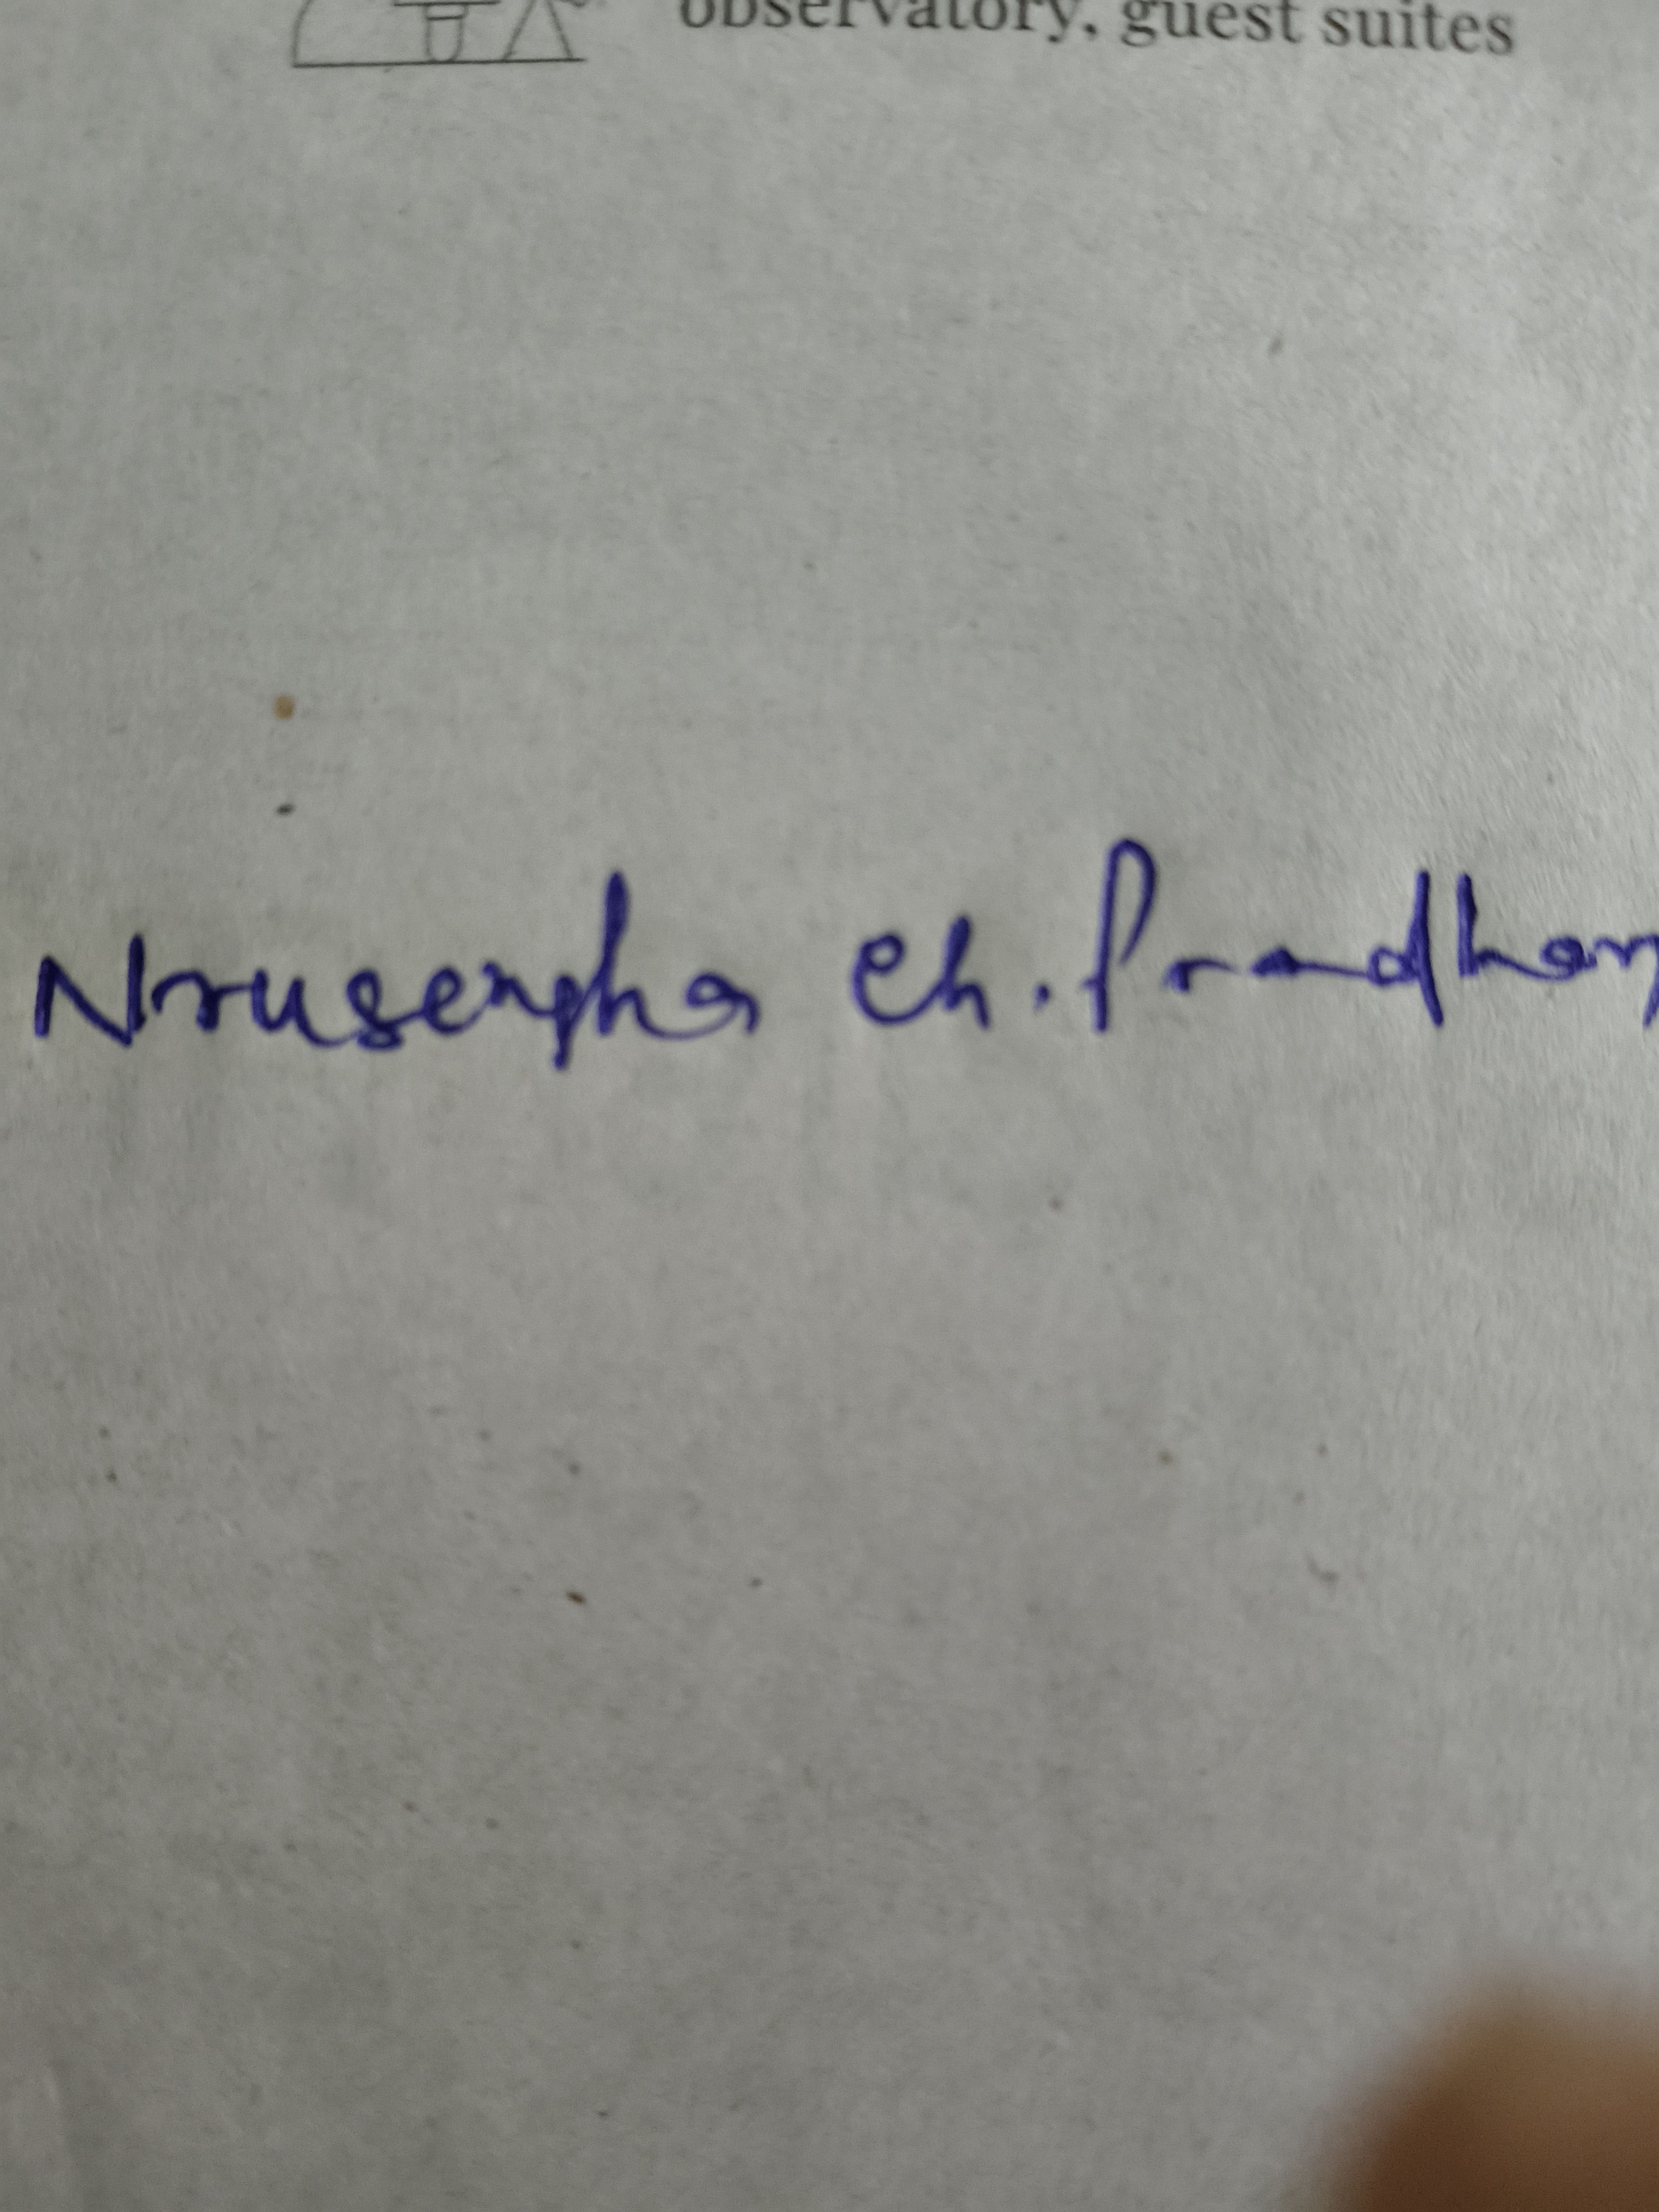 observatory, guest suites
Nrusengha Ch. Pradhan